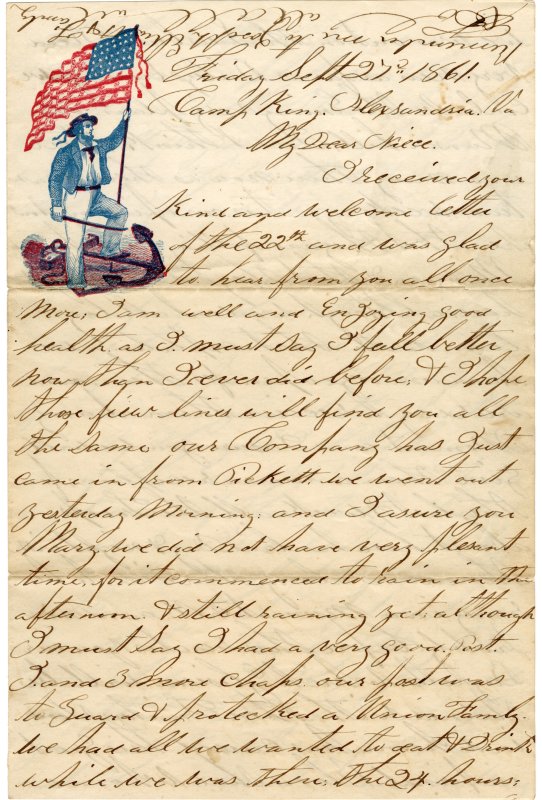 Friday Sept 27th 1861.
Camp King. Alexandria. Va
My Dear Niece.
I received your
Kind and welcome letter
of the 22th and was glad
to hear from you all once
More; I am well and Enjoying good
health as I. must say I feell better
now than I ever did before; & I hope
those fiew lines will find you all
the same our Company has Just
came in from Pickett. we went out
yesterday Morning: and I asure you
Mary we did not have very plesant
time, for it commenced to rain in the
afternoon. & still raining yet. although
I must Say I had a very good. Post.
I. and 3 more Chaps. our post was
to Guard & protected a Union Family.
we had all we wanted to eat & Drink
while we was there; the 24. hours;